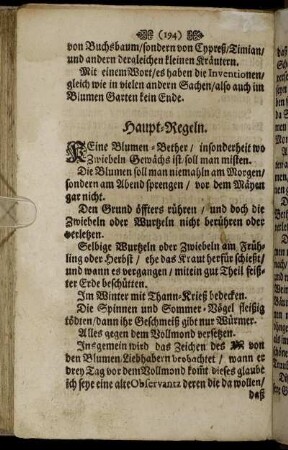 (194)
von Buchsbaum/sondern von Cypreß/Timian/
und andern dergleichen kleinen Kräutern.
Mit einem Wort/es haben die Inventionen/
gleich wie in vielen andern Sachen/also auch im
Blumen Garten kein Ende.
Haupt-Regeln.
KEine Blumen-Bether / insonderheit wo
Zwiebeln Gewächs ist soll man misten.
Die Blumen soll man niemahln am Morgen/
sondern am Abend sprengen / vor dem Mäyen
gar nicht.
Den Grund öffters rühren / und doch die
Zwiebeln oder Wurtzeln nicht berühren oder
verletzen.
Selbige Wurtzeln oder Zwiebeln am Früh-
ling oder Herbst / ehe das Kraut herfür schießt/
und wann es vergangen / mit ein gut Theil feiß-
ter Erde beschütten.
Im Winter mit Thann-Krieß bedecken.
Die Spinnen und Sommer-Vögel fleißig
tödten/dann ihr Geschmeiß gibt nur Würmer.
Alles gegen dem Vollmond versetzen.
Insgemein wird das Zeichen des von
den Blumen Liebhabern beobachtet / wann er
drey Tag vor dem Vollmond kömt dieses glaube
ich seye eine alte Observantz deren die da wollen/
daß